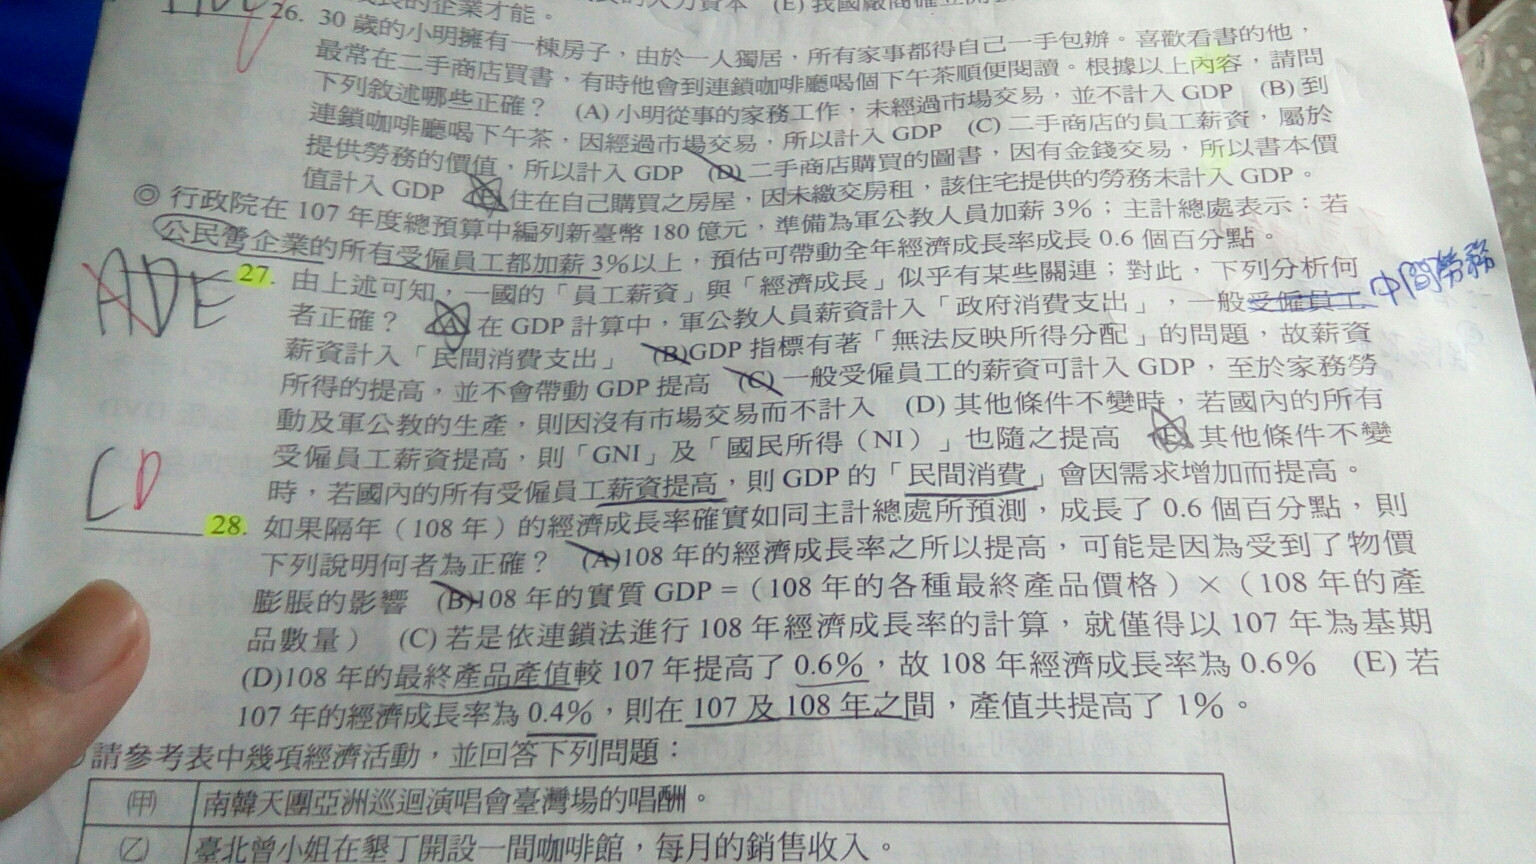 成長的企業才能。
26. 30 歲的小明擁有一棟房子，由於一人獨居，所有家事都得自己一手包辦。喜歡看書的他，
最常在二手商店買書，有時他會到連鎖咖啡廳喝個下午茶順便閱讀。根據以上內容，請問
下列敘述哪些正確？ (A) 小明從事的家務工作，未經過市場交易，並不計入 GDP (B) 到
連鎖咖啡廳喝下午茶，因經過市場交易，所以計入 GDP (C) 二手商店的員工薪資，屬於
提供勞務的價值，所以計入 GDP (D) 二手商店購買的圖書，因有金錢交易，所以書本價
值計入 GDP (E) 住在自己購買之房屋，因未繳交房租，該住宅提供的勞務未計入 GDP。
◎ 行政院在 107 年度總預算中編列新臺幣 180 億元，準備為軍公教人員加薪 3%；主計總處表示：若
公民營企業的所有受僱員工都加薪 3%以上，預估可帶動全年經濟成長率成長 0.6 個百分點。
ADE 27. 由上述可知，一國的「員工薪資」與「經濟成長」似乎有某些關連；對此，下列分析何
者正確？ (A) 在 GDP 計算中，軍公教人員薪資計入「政府消費支出」，一般受僱員工 中間勞務
薪資計入「民間消費支出」 (B)GDP 指標有著「無法反映所得分配」的問題，故薪資
所得的提高，並不會帶動 GDP 提高 (C) 一般受僱員工的薪資可計入 GDP，至於家務勞
動及軍公教的生產，則因沒有市場交易而不計入 (D) 其他條件不變時，若國內的所有
受僱員工薪資提高，則「GNI」及「國民所得（NI）」也隨之提高 (E) 其他條件不變
時，若國內的所有受僱員工薪資提高，則 GDP 的「民間消費」會因需求增加而提高。
CD 28. 如果隔年（108 年）的經濟成長率確實如同主計總處所預測，成長了 0.6 個百分點，則
下列說明何者為正確？ (A)108 年的經濟成長率之所以提高，可能是因為受到了物價
膨脹的影響 (B)108 年的實質 GDP =（108 年的各種最終產品價格）×（108 年的產
品數量） (C) 若是依連鎖法進行 108 年經濟成長率的計算，就僅得以 107 年為基期
(D)108 年的最終產品產值較 107 年提高了 0.6%，故 108 年經濟成長率為 0.6% (E) 若
107 年的經濟成長率為 0.4%，則在 107 及 108 年之間，產值共提高了 1%。
請參考表中幾項經濟活動，並回答下列問題：
(甲) 南韓天團亞洲巡迴演唱會臺灣場的唱酬。
(乙) 臺北曾小姐在墾丁開設一間咖啡館，每月的銷售收入。